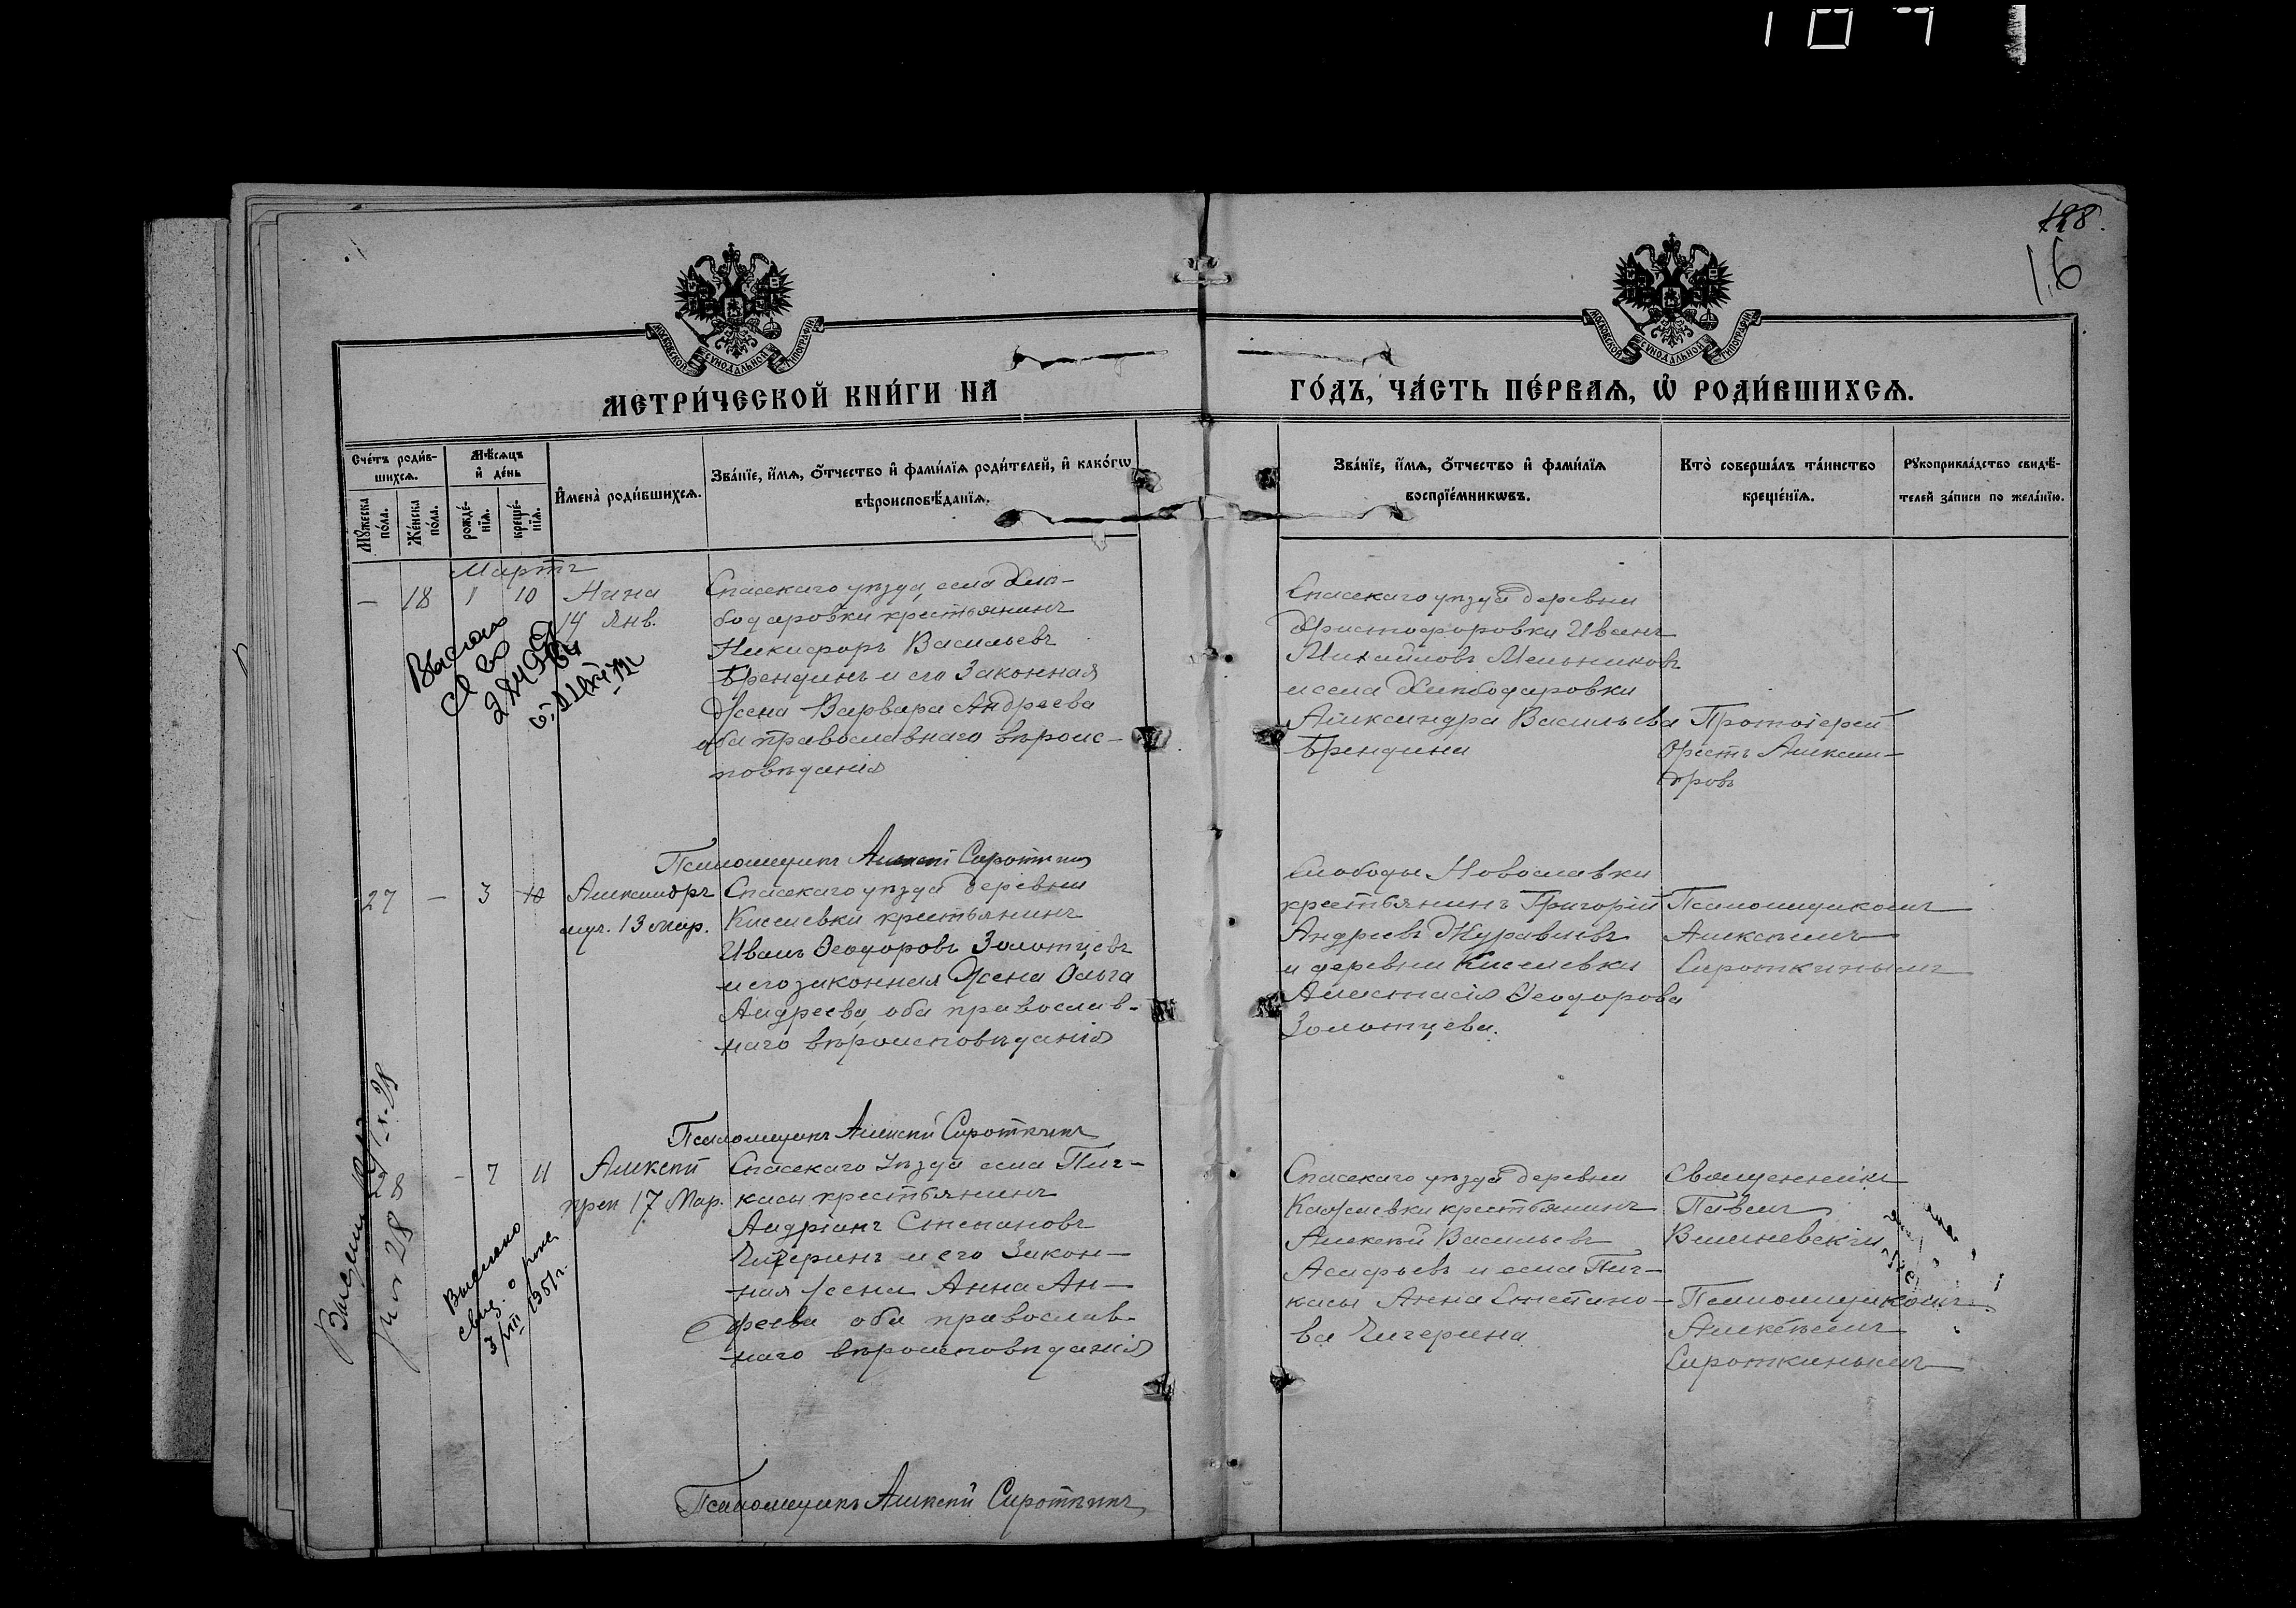 1071
128.
16
МОСКОВСКОЙ СѴНОДАЛЬНОЙ ТИПОГРАФІИ
МОСКОВСКОЙ СѴНОДАЛЬНОЙ ТИПОГРАФІИ
МЕТРИ́ЧЕСКОЙ КНИ́ГИ НА
ГО́ДЪ, ЧА́СТЬ ПЕ́РВАѦ, Ѡ҆ РОДИ́ВШИХСѦ.
Сче́тъ роди́в-
шихсѧ.
Мꙋ́жеска по́ла.
Же́нска по́ла.
Мѣ́сѧцъ
и҆ де́нь
рожде́-
нїѧ.
креще́-
нїѧ.
И҆мена̀ роди́вшихсѧ.
Зва́нїе, и҆́мѧ, ѻ҆́тчество и҆ фами́лїѧ роди́телей, и҆ како́гѡ
вѣроисповѣ́данїѧ.
Зва́нїе, и҆́мѧ, ѻ҆́тчество и҆ фами́лїѧ
воспрїе́мникѡвъ.
Кто̀ соверша́лъ та́инство
креще́нїѧ.
Рꙋкоприкла́дство свидѣ́-
телей за́писи по жела́нїю.
Мартъ
— 18 1 10 Нина
14 Янв.
Спасскаго уѣзда, села Хлѣ-
бодаровки крестьянинъ
Никифоръ Васильевъ
Брендинъ и его Законная
Жена Варвара Андреева
оба православнаго вѣроис-
повѣданія
Спасскаго уѣзда деревни
Христофоровки Иванъ
Михайловъ Мельниковъ
и села Хлѣбодаровки
Александра Васильева
Брендина
Протоіерей
Орестъ Алексан-
дровъ
Псаломщикъ Алексѣй Сироткинъ
27 — 3 10 Александръ
муч. 13 Мар.
Спасскаго уѣзда деревни
Киселевки крестьянинъ
Иванъ Ѳеодоровъ Золотцевъ
и его законная Жена Ольга
Андреева, оба православ-
наго вѣроисповѣданія
Слободы Новославки
крестьянинъ Григорій
Андреевъ Журавлевъ
и деревни Киселевки
Анастасія Ѳеодорова
Золотцева.
Псаломщикомъ
Алексѣемъ
Сироткинымъ
Псаломщикъ Алексѣй Сироткинъ
28 — 7 11 Алексѣй
преп 17 Мар.
Спасскаго Уѣзда села Пич-
касы крестьянинъ
Андріанъ Степановъ
Чичеринъ и его Закон-
ная Жена Анна Ан-
дреева оба православ-
наго вѣроисповѣданія
Выслано
свид. о рожд.
3/VIII 1951 г.
Спасскаго уѣзда деревни
Кожаевки крестьянинъ
Алексѣй Васильевъ
Асафьевъ и села Пич-
касы Анна Степано-
ва Чичерина
Священникъ
Павелъ
Вишневскій
Псаломщикомъ
Алексѣемъ
Сироткинымъ
Псаломщикъ Алексѣй Сироткинъ